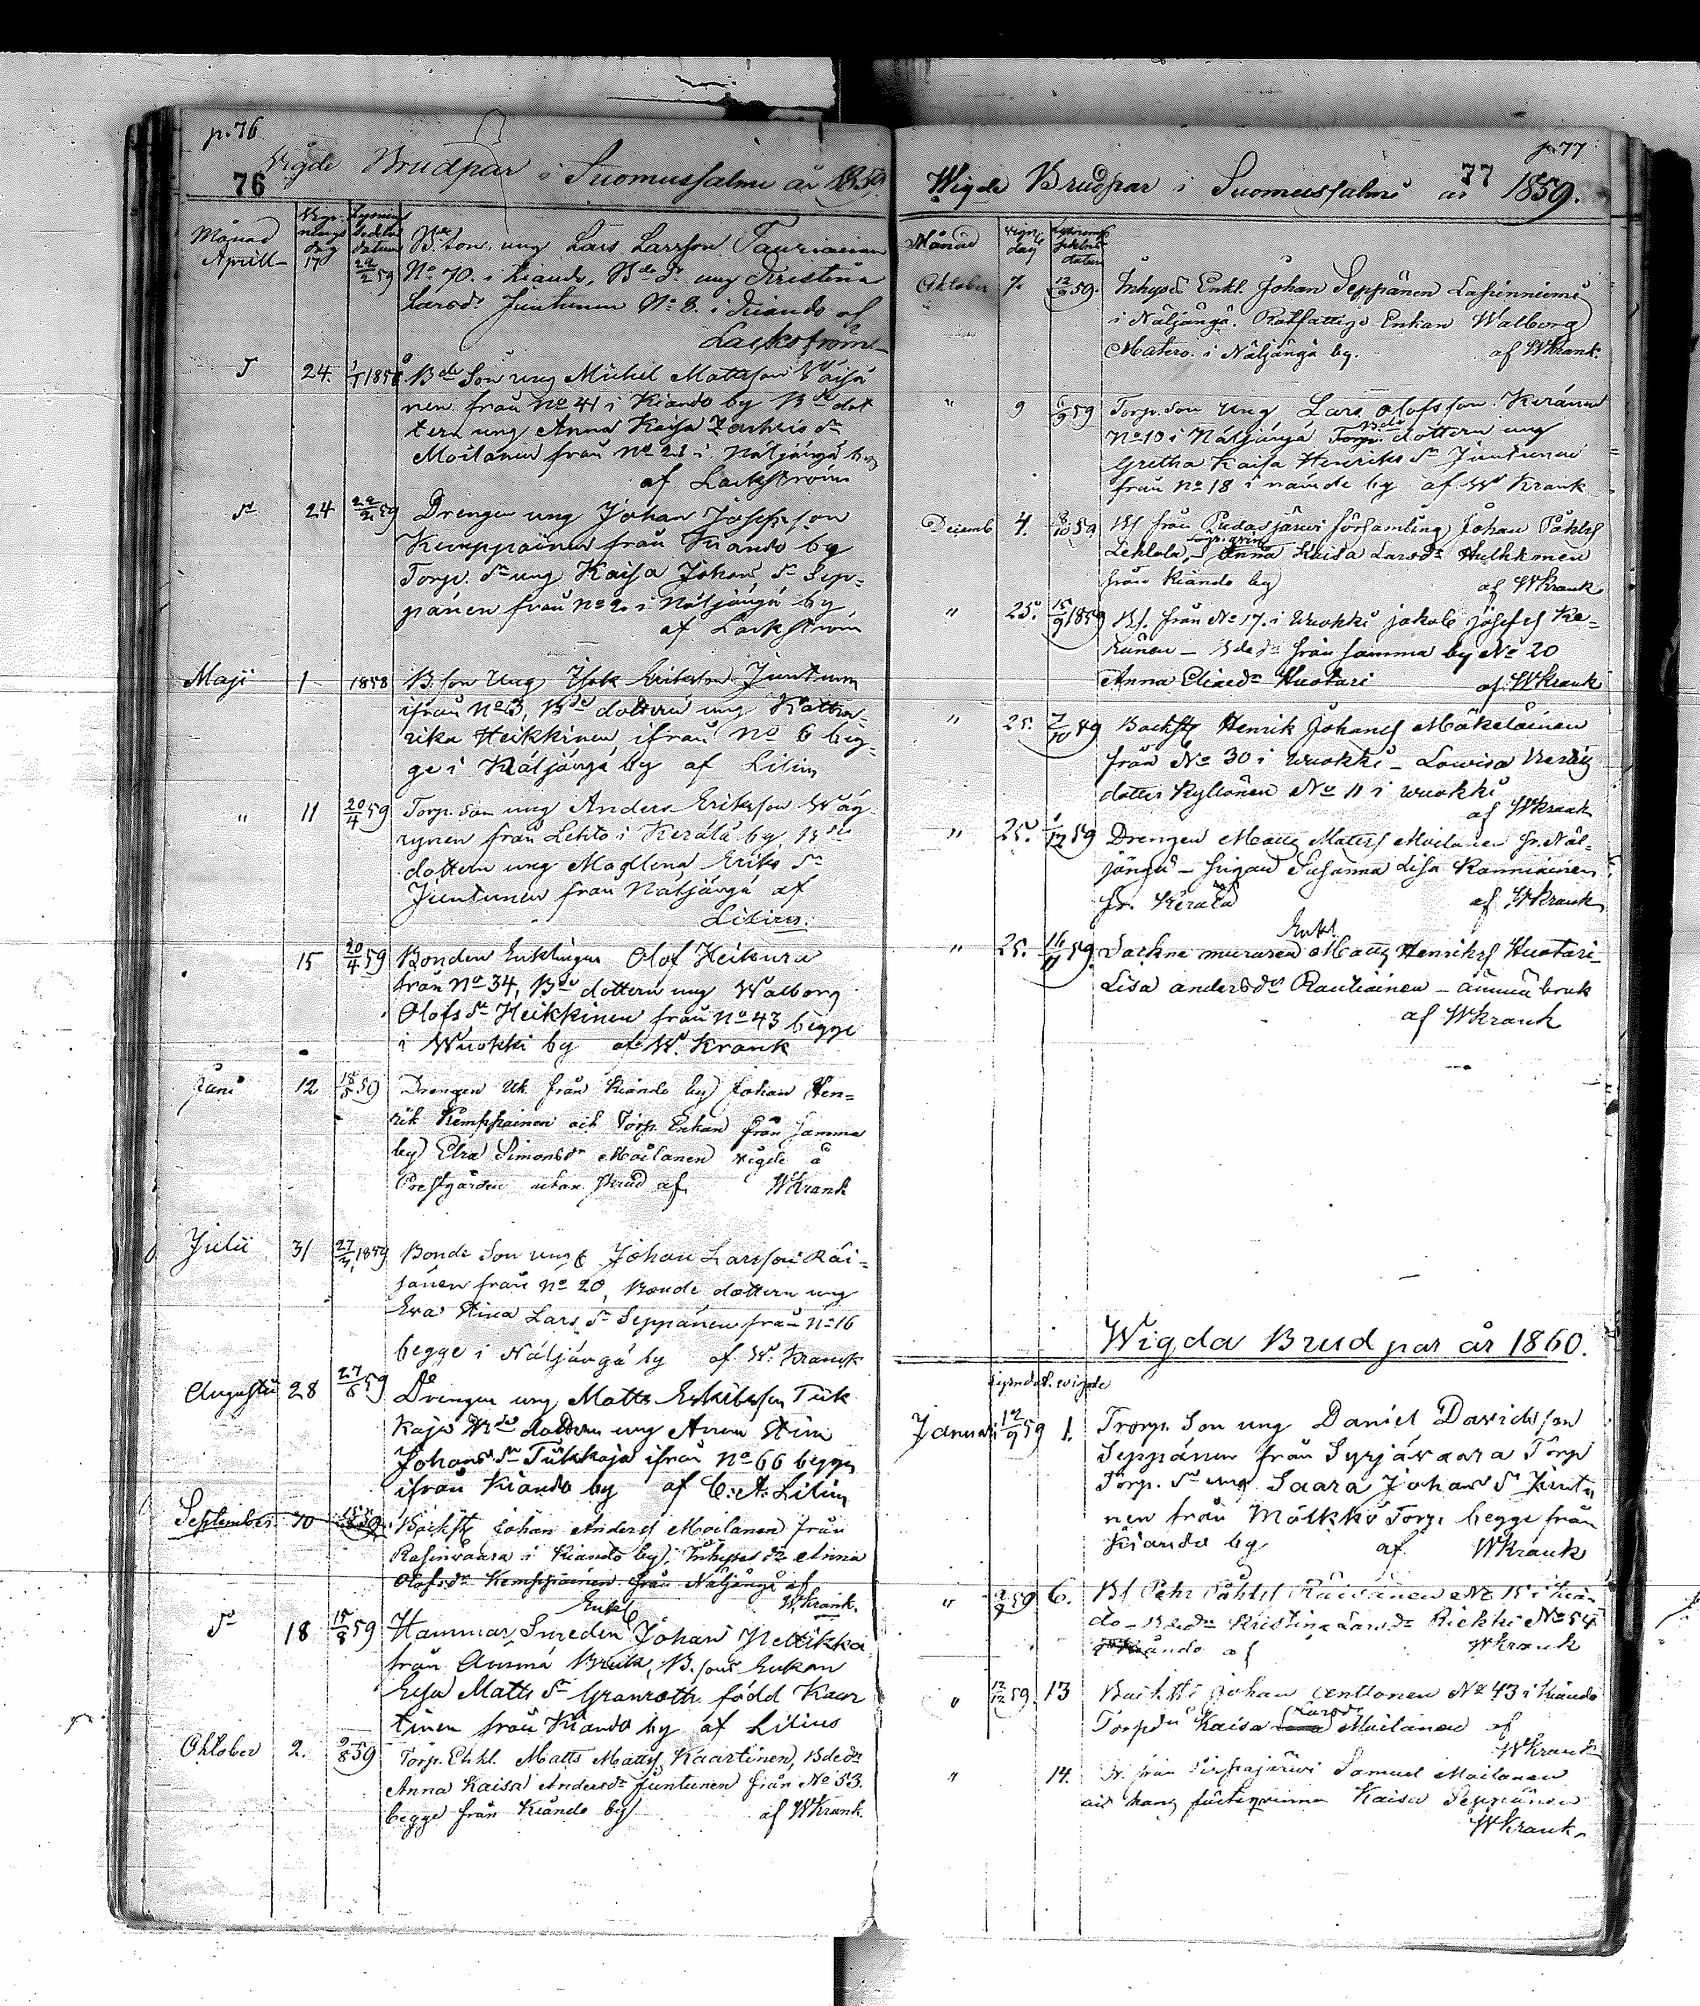 p. 76
76
Wigde Brudpar i Suomussalmi år 1859.
Månad
Aprill 17 22/2 59 B:de Son ung Lars Larsson Tauriainen
No 70. i Kiando, B:de dr ung Kristina
Larsdr Juntunen No 8. i Kiando af
Lackström
dº 24. 1858 Bde Son ung Michel Mattsson Väisä
nen från No 41 i Kiando by Bde dot
tern ung Anna Kaisa Zachris dr
Moilanen från No 28 i Näljängä by
af Lackström
dº 24 22/2 59 Drengen ung Johan Josefsson
Kemppainen från Kiando by
Torp. dr ung Kaisa Johans dr Sep=
pänen från No 2 i Näljängä by,
af Lackström
Maji 1 1858 B. son ung Isak Eriksson Juntunen
ifrån No 3, Bde dottern ung Kattra-
rika Heikkinen ifrån No 6 beg=
ge i Näljängä by af Lilius
" 11 20/4 59 Torp. son ung Anders Eriksson Wäy
rynen från Lehto i Kerälä by, Bde
dottern ung Madlena Eriks dr
Juntunen från Näljängä af
Lilius.
15 20/4 59 Bonden Enklingen Olof Heikura
från No 34, Bde dottern ung Walborg
Olofs dr Heikkinen från No 43 begge
i Wuokki by af W. Krank
Juni 12 15/5 59 Drengen från Kiando by Johan Hen=
rik Kemppainen och Torp. Enkan från samma
by Elsa Simonsdr Moilanen vigde å
Prestgården utan af WKrank
Julii 31 1859 Bonde Son ung Johan Larsson Räi=
sänen från No 20, Bonde dottern ung
Eva Stina Lars dr Seppänen från No 16
begge i Näljängä by af W. Kranck
Augustii 28 27/6 59 Drengen ung Matts Tik
kaja Bde dottern ung Anna Stin
Johans dr Tikkaja ifrån No 66 begge
ifrån Kiando by af C. A. Lilius
September 10 Backstg Johan Anders Moilanen från
Rasinvaara i Kiando by, Inhyses dr Anna
Olofsdr Kemppainen från Näljängä af
WKrank.
dº 18 15/8 59 Hammar Smeden Enkl Johan Neltikka
från Ämmä Bruk, B. sons Enkan
Elsa Matts dr Granroth född Kaar
tinen från Kiando by af Lilius
Oktober 2. 8 59 Torp. Enkl. Matts Matts Kaartinen, Bdedr
Anna Kaisa Andersdr Juntunen från No 53.
begge från Kiando by af WKrank
p. 77
77
Wigde Brudpar i Suomussalmi år 1859.
Månad
Oktober 7 12/9 59. Inhyses Enkl. Johan Seppänen Lasinniemi
i Näljängä. Rotfattige Enkan Walborg
Matero. i Näljängä by. af WKrank.
" 9 59 Torp. son ung Lars Olofsson Keränen
No 10 i Näljängä Bde dottern ung
Gretha Kaisa Henriks dr Juntunen
från No 18 i nämde by af W Krank
Decemb 4. 59 Bs från Pudasjärvi församling Johan Påhls
Lehtola, Anna Kaisa Larsdr Hulkkonen
från Kiando by af WKrank
" 25. 15/9 1859 Bs. från No 17. i Wuokki Jakob Josefs Ke=
ränen – Bdedr från samma by No 20
Anna Eliaedr Huotari af WKrank
" 25. 7/10 59 Backstg Henrik Johans Mäkeläinen
från No 30 i Wuokki – Lowisa
dotter Kyllönen No 11 i Wuokki
af WKrank
" 25. 59 Drengen Matts Matts Moilanen fr. Näl=
jängä – Susanna Lisa Kanniainen
fr. Kerälä af WKrank
" 25. 16/11 59 Enkl. Matts Henriks Huotari–
Lisa Andersdr Rautiainen – Ämmä bruk
af WKrank
Wigda Brudpar år 1860.
Januari 12/9 59 1. Torp. Son ung Daniel Davidsson
Seppänen från Syrjävaara Torp
Torp. dr ung Saara Johans dr Juntu
nen från Mölkkö Torp begge från
Kiando by af WKrank
" 59 6. Bs Pehr Påhls Räisänen No 15 i Kian=
do – Bdedr Kristina Larsdr Riekki No 54
Kiando af WKrank
" 12/12 59. 13 Backstg Johan Anttonen No 43 i Kiando
Torpdr Kaisa Larsdr Moilanen af
WKrank
" 14. från Piispajärvi Samuel Moilanen
och hans Kaisa Seppänen
WKrank.